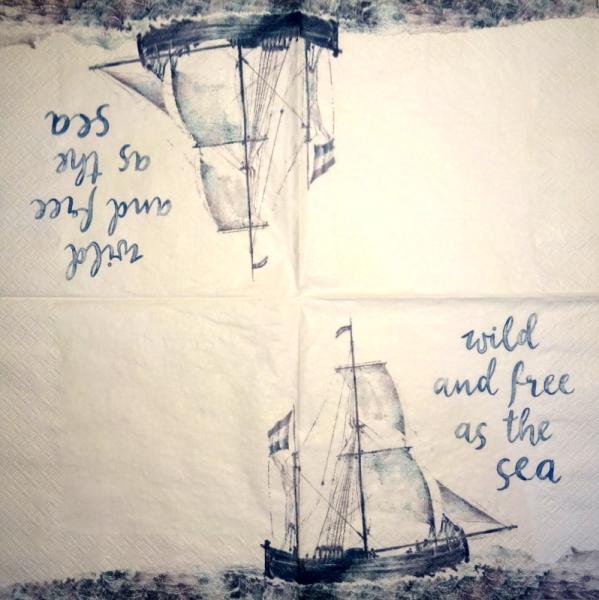 wild
and free
as the
sea
wild
and free
as the
sea